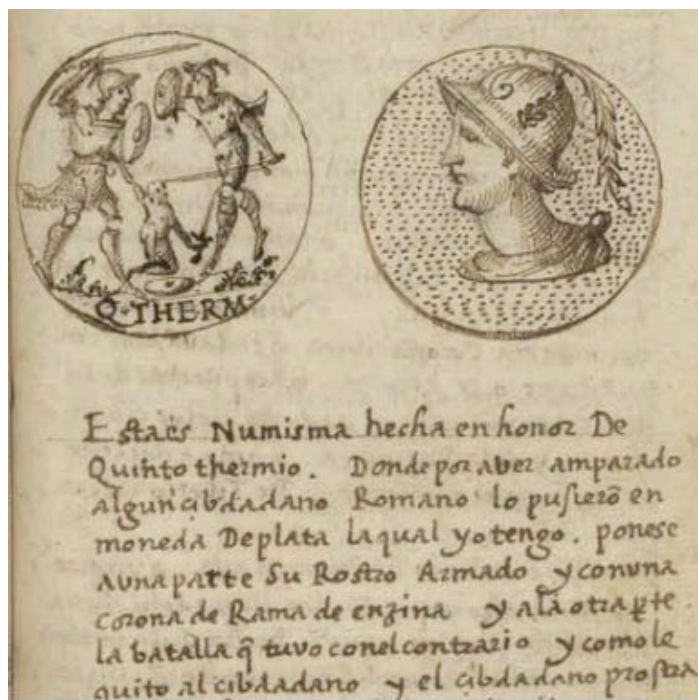 Q·THERM·
Estaes Numisma hecha en honor De
Quinto thermio. Donde por aver amparado
algun cibdadano Romano lo pusierõ en
moneda De plata la qual yo tengo. ponese
a una parte Su Rostro Armado y con una
corona de Rama de enzina y a la otra pte
la batalla q̃ tuvo con el contrario y como le
quito al cibdadano y el cibdadano prostra